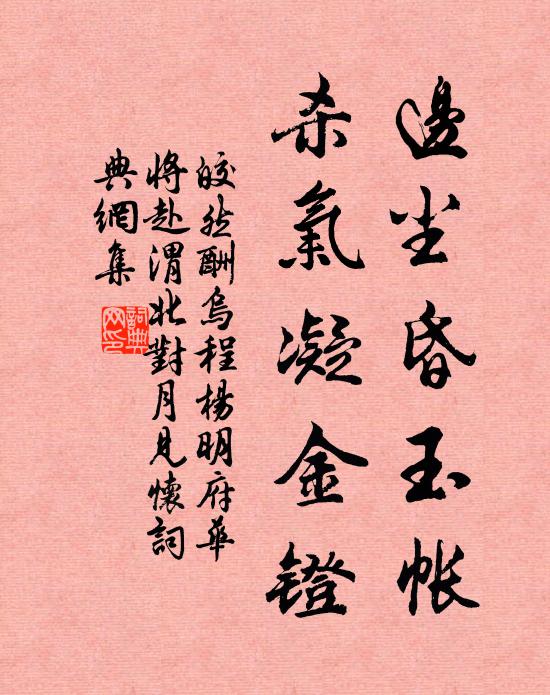 邊尘昏玉帐
杀氣凝金镫
皎然酬烏程楊明府華
将赴渭北對月見懷詞
典網集
詞典網印